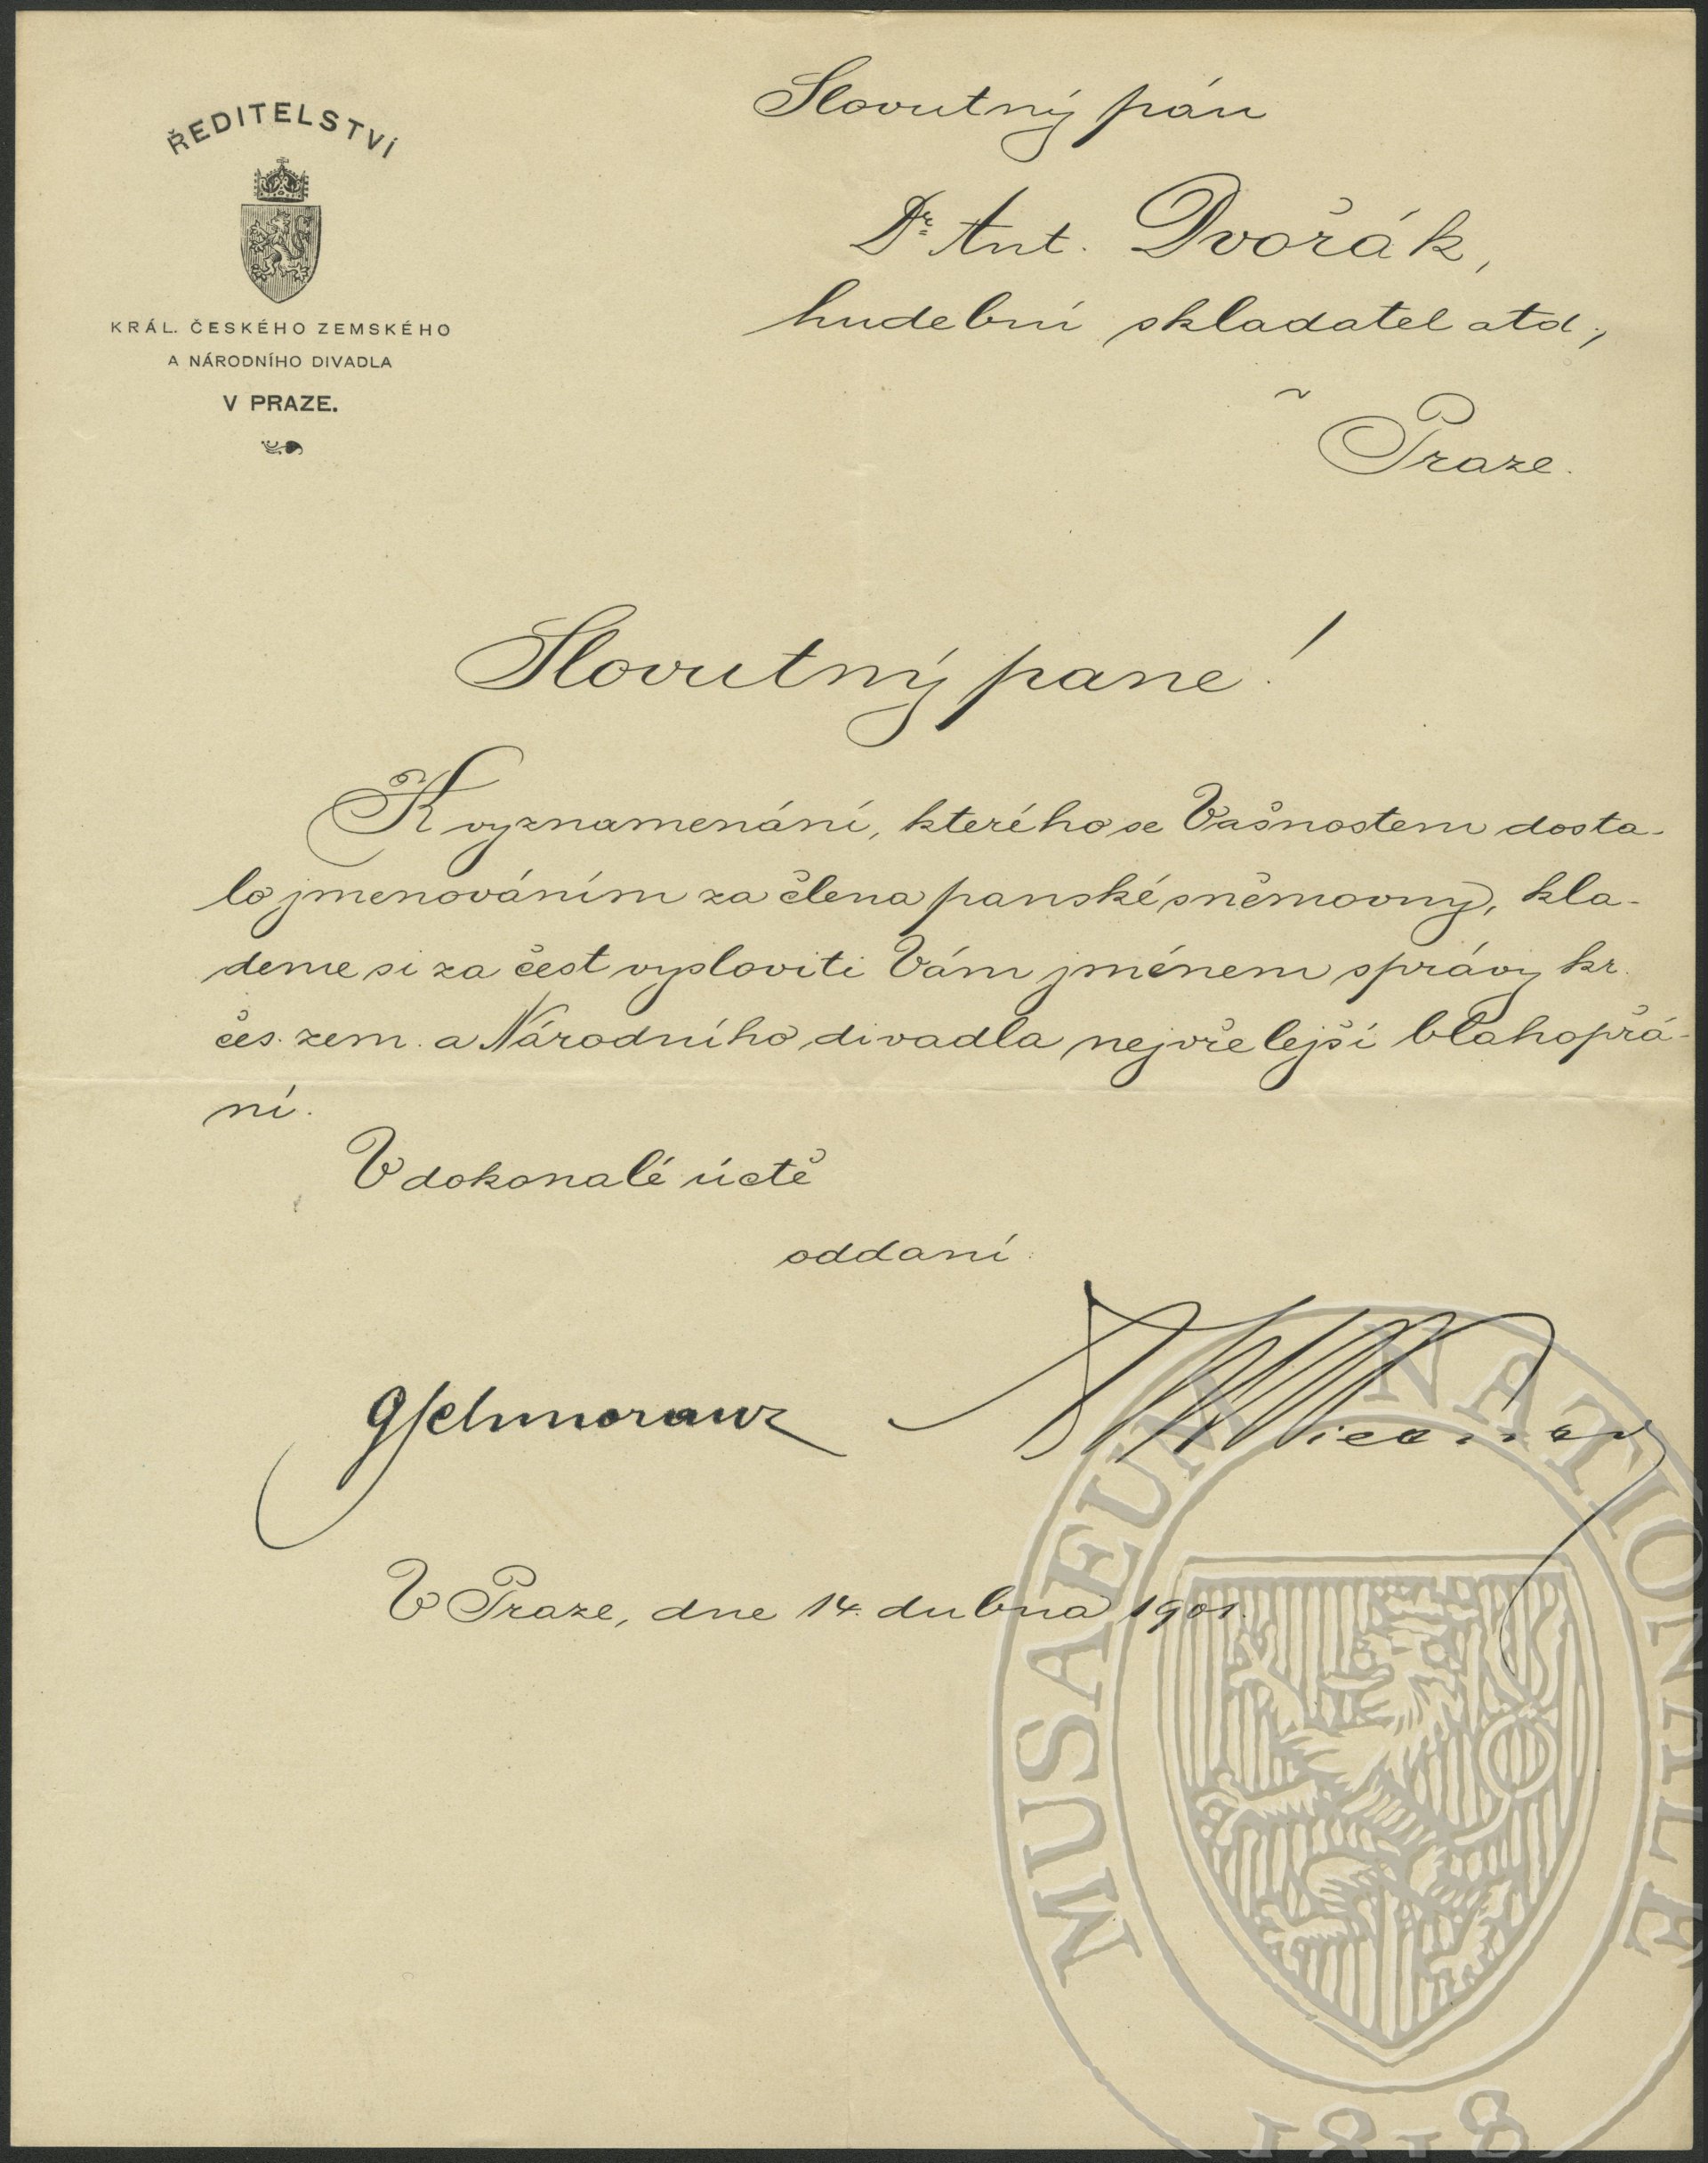 ŘEDITELSTVÍ
KRÁL. ČESKÉHO ZEMSKÉHO
A NÁRODNÍHO DIVADLA
V PRAZE.
Slovutný pán
Dr. Ant. Dvořák,
hudební skladatel atd.,
v Praze.
Slovutný pane!
K vyznamenání, kterého se Vašnostem dosta-
lo jmenováním za člena panské sněmovny, kla-
deme si za čest vysloviti Vám jménem správy kr.
čes. zem. a Národního divadla nejvřelejší blahopřá-
ní.
V dokonalé úctě
oddaní
GSchmoranz
V Praze, dne 14. dubna 1901.
MUSAEUM NATIONALE
1818